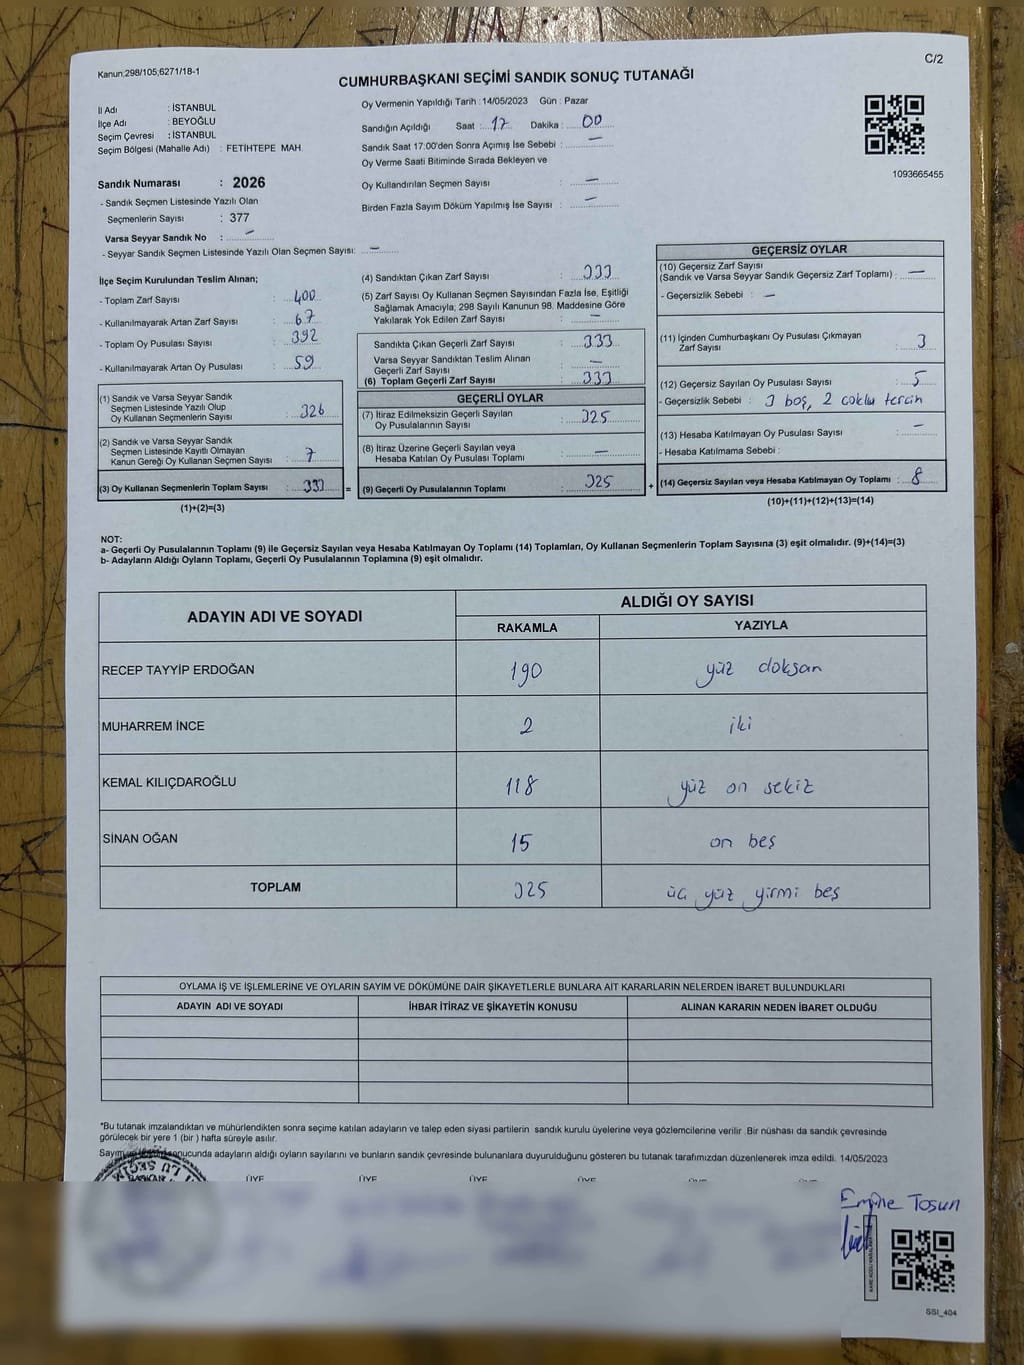 Kanun;298/105,6271/18-1
C/2
CUMHURBAŞKANI SEÇİMİ SANDIK SONUÇ TUTANAĞI
İl Adı : İSTANBUL
İlçe Adı : BEYOĞLU
Seçim Çevresi : İSTANBUL
Seçim Bölgesi (Mahalle Adı) : FETİHTEPE MAH.
Oy Vermenin Yapıldığı Tarih : 14/05/2023 Gün : Pazar
Sandığın Açıldığı Saat : 17 Dakika : 00
Sandık Saat 17:00'den Sonra Açımış İse Sebebi : —
Oy Verme Saati Bitiminde Sırada Bekleyen ve
Oy Kullandırılan Seçmen Sayısı : —
Birden Fazla Sayım Döküm Yapılmış İse Sayısı : —
1093665455
Sandık Numarası : 2026
- Sandık Seçmen Listesinde Yazılı Olan
Seçmenlerin Sayısı : 377
Varsa Seyyar Sandık No : —
- Seyyar Sandık Seçmen Listesinde Yazılı Olan Seçmen Sayısı: —
İlçe Seçim Kurulundan Teslim Alınan;
- Toplam Zarf Sayısı : 400
- Kullanılmayarak Artan Zarf Sayısı : 67
- Toplam Oy Pusulası Sayısı : 392
- Kullanılmayarak Artan Oy Pusulası : 59
(1) Sandık ve Varsa Seyyar Sandık
Seçmen Listesinde Yazılı Olup
Oy Kullanan Seçmenlerin Sayısı : 326
(2) Sandık ve Varsa Seyyar Sandık
Seçmen Listesinde Kayıtlı Olmayan
Kanun Gereği Oy Kullanan Seçmen Sayısı : 7
(3) Oy Kullanan Seçmenlerin Toplam Sayısı : 333 =
(1)+(2)=(3)
(4) Sandıktan Çıkan Zarf Sayısı : 333
(5) Zarf Sayısı Oy Kullanan Seçmen Sayısından Fazla İse, Eşitliği
Sağlamak Amacıyla, 298 Sayılı Kanunun 98. Maddesine Göre
Yakılarak Yok Edilen Zarf Sayısı : —
Sandıkta Çıkan Geçerli Zarf Sayısı : 333
Varsa Seyyar Sandıktan Teslim Alınan
Geçerli Zarf Sayısı : —
(6) Toplam Geçerli Zarf Sayısı : 333
GEÇERLİ OYLAR
(7) İtiraz Edilmeksizin Geçerli Sayılan
Oy Pusulalarının Sayısı : 325
(8) İtiraz Üzerine Geçerli Sayılan veya
Hesaba Katılan Oy Pusulası Toplamı : —
(9) Geçerli Oy Pusulalarının Toplamı : 325 +
GEÇERSİZ OYLAR
(10) Geçersiz Zarf Sayısı
(Sandık ve Varsa Seyyar Sandık Geçersiz Zarf Toplamı) : —
- Geçersizlik Sebebi : —
(11) İçinden Cumhurbaşkanı Oy Pusulası Çıkmayan
Zarf Sayısı : 3
(12) Geçersiz Sayılan Oy Pusulası Sayısı : 5
- Geçersizlik Sebebi : 3 boş, 2 çoklu tercih
(13) Hesaba Katılmayan Oy Pusulası Sayısı : —
- Hesaba Katılmama Sebebi :
(14) Geçersiz Sayılan veya Hesaba Katılmayan Oy Toplamı : 8
(10)+(11)+(12)+(13)=(14)
NOT:
a- Geçerli Oy Pusulalarının Toplamı (9) ile Geçersiz Sayılan veya Hesaba Katılmayan Oy Toplamı (14) Toplamları, Oy Kullanan Seçmenlerin Toplam Sayısına (3) eşit olmalıdır. (9)+(14)=(3)
b- Adayların Aldığı Oyların Toplamı, Geçerli Oy Pusulalarının Toplamına (9) eşit olmalıdır.
ADAYIN ADI VE SOYADI ALDIĞI OY SAYISI
RAKAMLA YAZIYLA
RECEP TAYYİP ERDOĞAN 190 yüz doksan
MUHARREM İNCE 2 iki
KEMAL KILIÇDAROĞLU 118 yüz on sekiz
SİNAN OĞAN 15 on beş
TOPLAM 325 üç yüz yirmi beş
OYLAMA İŞ VE İŞLEMLERİNE VE OYLARIN SAYIM VE DÖKÜMÜNE DAİR ŞİKAYETLERLE BUNLARA AİT KARARLARIN NELERDEN İBARET BULUNDUKLARI
ADAYIN ADI VE SOYADI İHBAR İTİRAZ VE ŞİKAYETİN KONUSU ALINAN KARARIN NEDEN İBARET OLDUĞU
*Bu tutanak imzalandıktan ve mühürlendikten sonra seçime katılan adayların ve talep eden siyasi partilerin sandık kurulu üyelerine veya gözlemcilerine verilir .Bir nüshası da sandık çevresinde
görülecek bir yere 1 (bir ) hafta süreyle asılır.
sonucunda adayların aldığı oyların sayılarını ve bunların sandık çevresinde bulunanlara duyurulduğunu gösteren bu tutanak tarafımızdan düzenlenerek imza edildi. 14/05/2023
ÜYE ÜYE ÜYE ÜYE
Emine Tosun
SSI_404